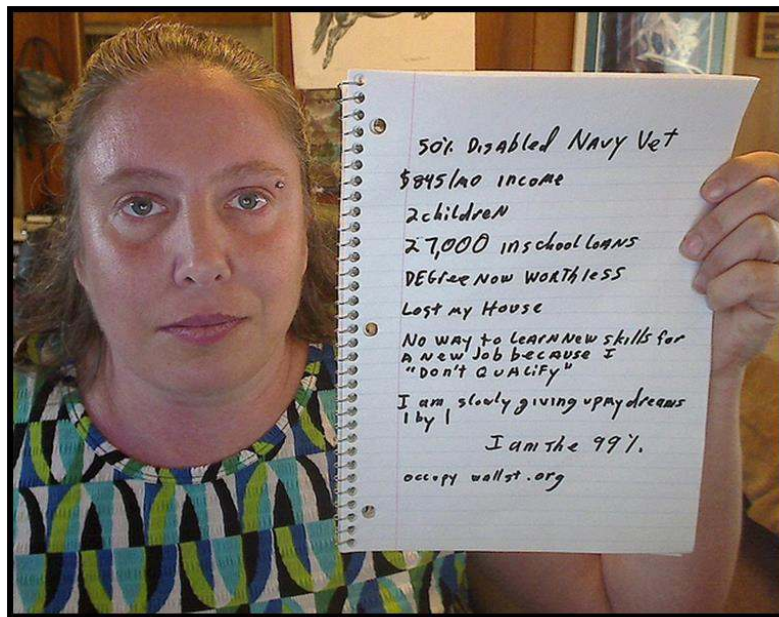 50% Disabled Navy Vet
$845/mo income
2 children
27,000 in school loans
Degree Now Worthless
Lost my House
No way to learn new skills for
a new job because I
"Don't Qualify"
I am slowly giving up my dreams
1 by 1
I am the 99%.
occupy wallst.org